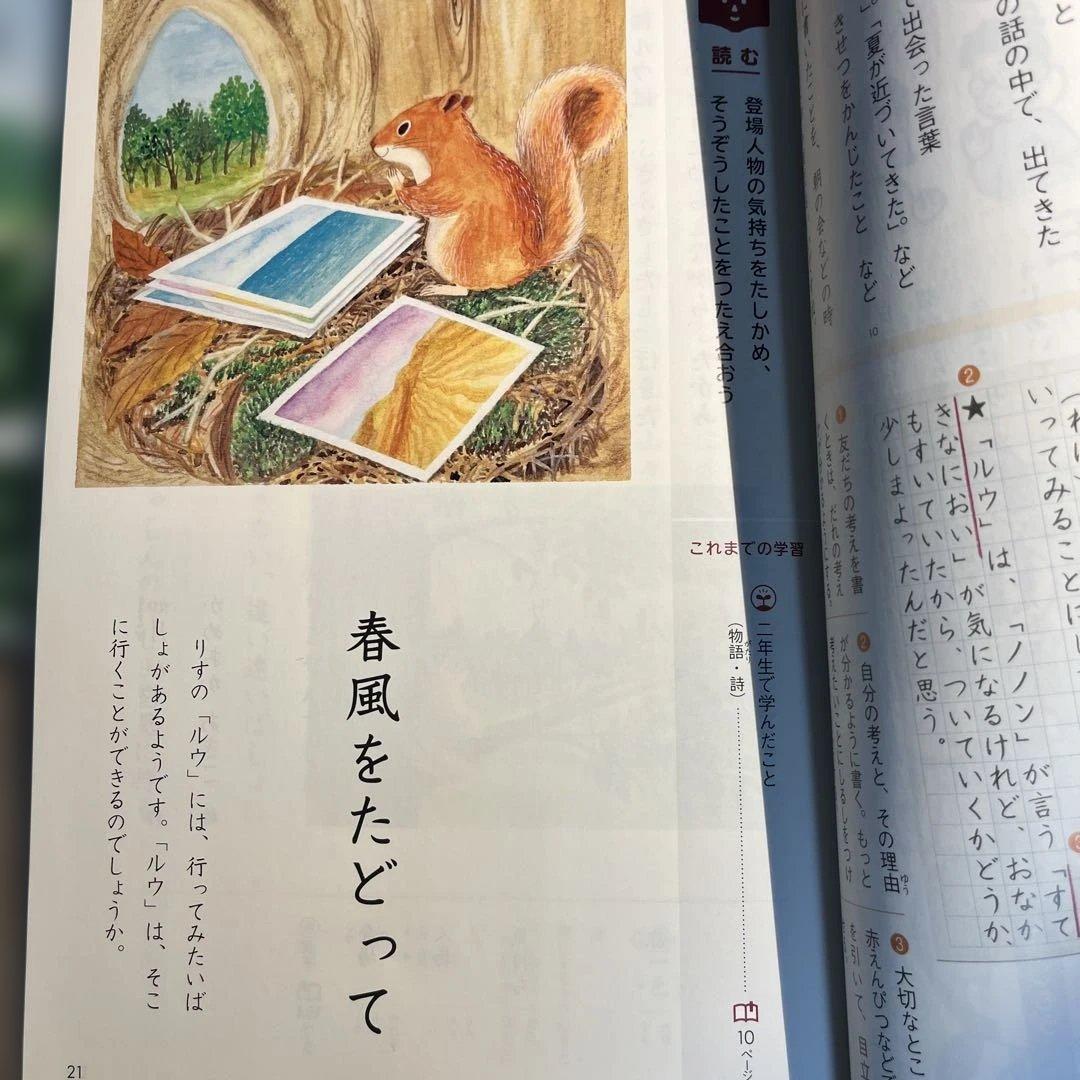 の話の中で、出てきた
で出会った言葉
」。「夏が近づいてきた。」など
きせつをかんじたこと など
10
読む
登場人物の気持ちをたしかめ、
そうぞうしたことをつたえ合おう
これまでの学習
二年生で学んだこと
(物語・詩)
がたり
10ページ
春風をたどって
りすの「ルウ」には、行ってみたいば
しょがあるようです。「ルウ」は、そこ
に行くことができるのでしょうか。
21
いってみることにし
2
★「ルウ」は、「ノノン」が言う「すて
きなにおい」が気になるけれど、おなか
もすいていたから、ついていくかどうか、
少しまよったんだと思う。
1 友だちの考えを書
くときは、だれの考え
2 自分の考えと、その理由
ゆう
が分かるように書く。もっと
考えたいことにしるしをつけ
3 大切なとこ
赤えんぴつなどで
を引いて、目立